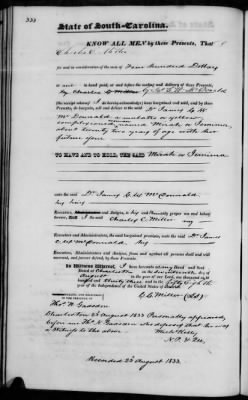 State of South-Carolina.
KNOW ALL MEN by these Presents, That I
Charles C. Miller
for and in consideration of the sum of Five hundred Dollars
to me in hand paid, at and before the sealing and delivery of these Presents,
By
the receipt whereof I do hereby acknowledge) have bargained and sold, and by these
Presents, do bargain, sell and deliver to the said Dr. James C. W.
McDonnald a mulatto or yellow
complexioned named Mirah or Jemima
about twenty two years of age with her
future
TO HAVE AND TO HOLD, THE SAID Mirah or Jemima
unto the said Dr. James C. W. McDonnald
his
Executors, Administrators and Assigns, to his and their only proper use and behoof,
forever. And I the said Charles C. Miller
my
Executors and Administrators, the said bargained premises, unto the said Dr. James
C. W. McDonnald his
Executors, Administrators and Assigns, from and against all persons shall and will
warrant, and forever defend, by these Presents.
In Witness Whereof, I have hereunto set my Hand and Seal
Dated at Charleston on the
day of August in the year of our Lord one thousand eight
hundred and thirty three and in the fifty eighth year of the
Independence of the United States of America.
C. C. Miller (LS)
Thos. N. Gadsden
Charleston 23 August 1833 Personally appeared
before me Thos. N. Gadsden who deposed that he was
a Witness to the above
Recorded 23 August 1833.